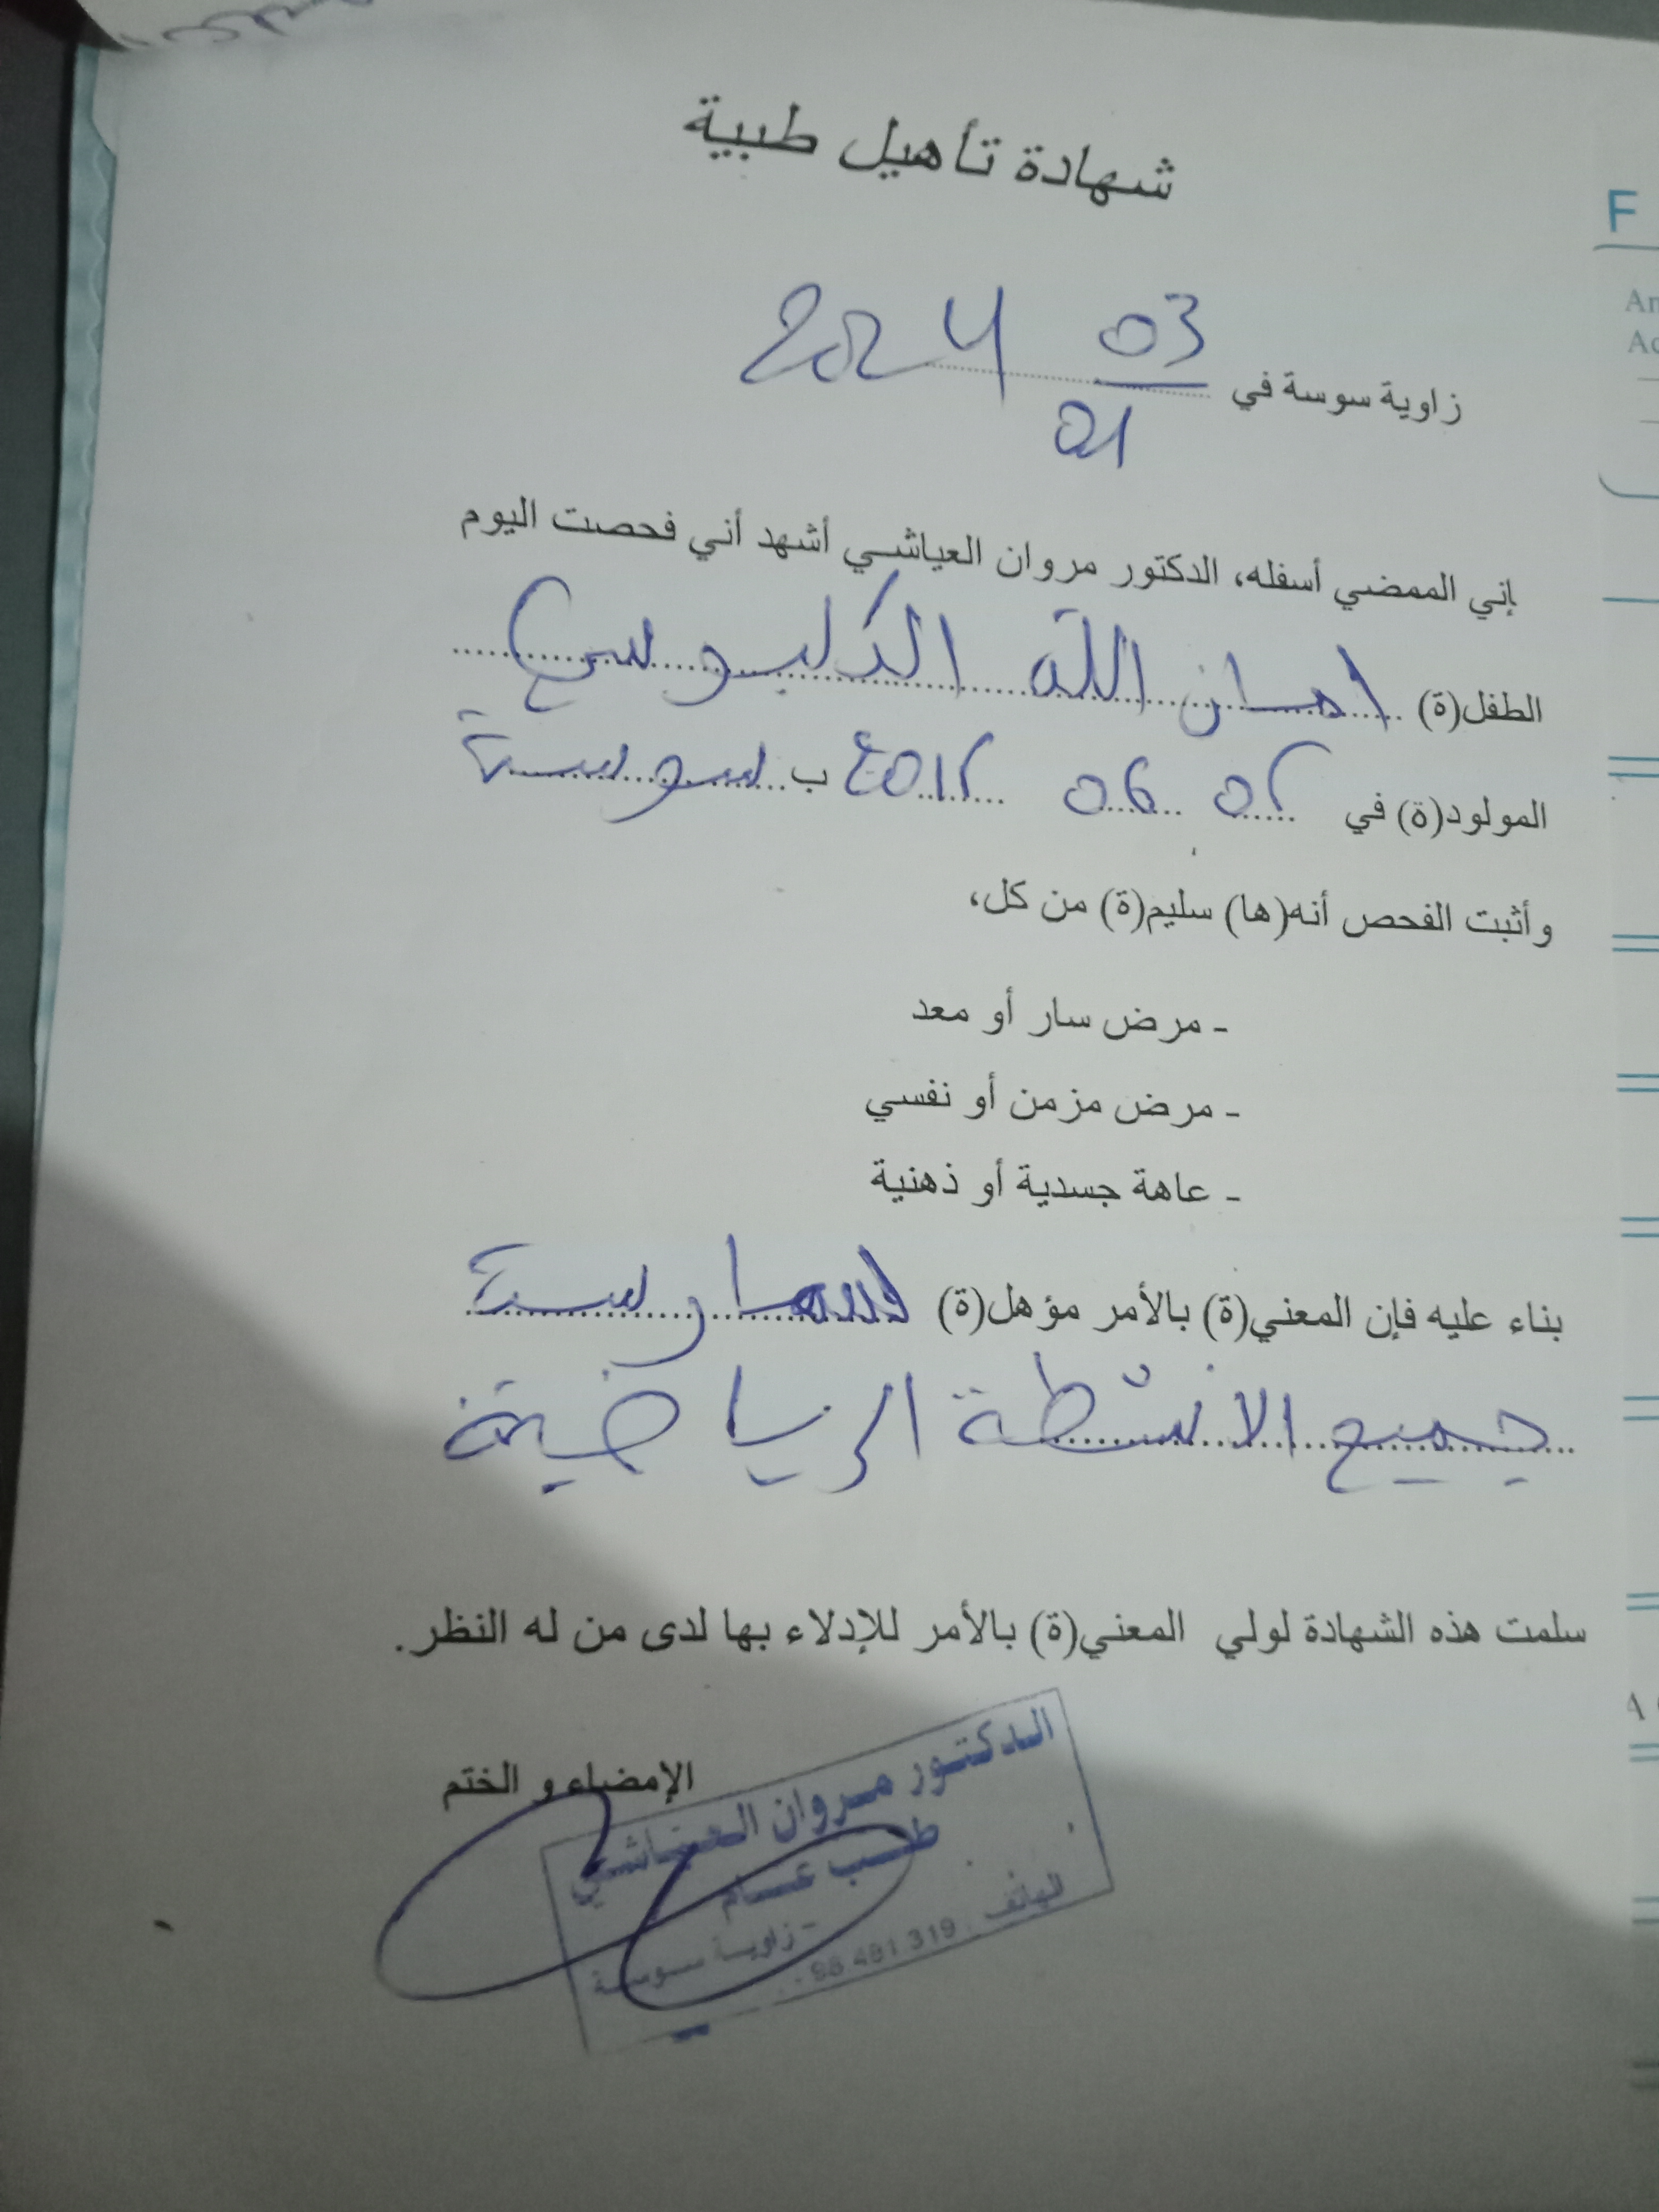 شهادة تأهيل طبية
زاوية سوسة في 03 2024
01
إني الممضي أسفله، الدكتور مروان العياشي أشهد أني فحصت اليوم
الطفل(ة) امان الله الكلبوسي
المولود(ة) في 06 ب سوسة
وأثبت الفحص أنه(ها) سليم(ة) من كل،
- مرض سار أو معد
- مرض مزمن أو نفسي
- عاهة جسدية أو ذهنية
بناء عليه فإن المعني(ة) بالأمر مؤهل(ة) لممارسة
جميع الانشطة الرياضية
سلمت هذه الشهادة لولي المعني(ة) بالأمر للإدلاء بها لدى من له النظر.
الإمضاء و الختم
الدكتور مروان العياشي
طب عام
- زاوية سوسة
الهاتف : 98 481 319